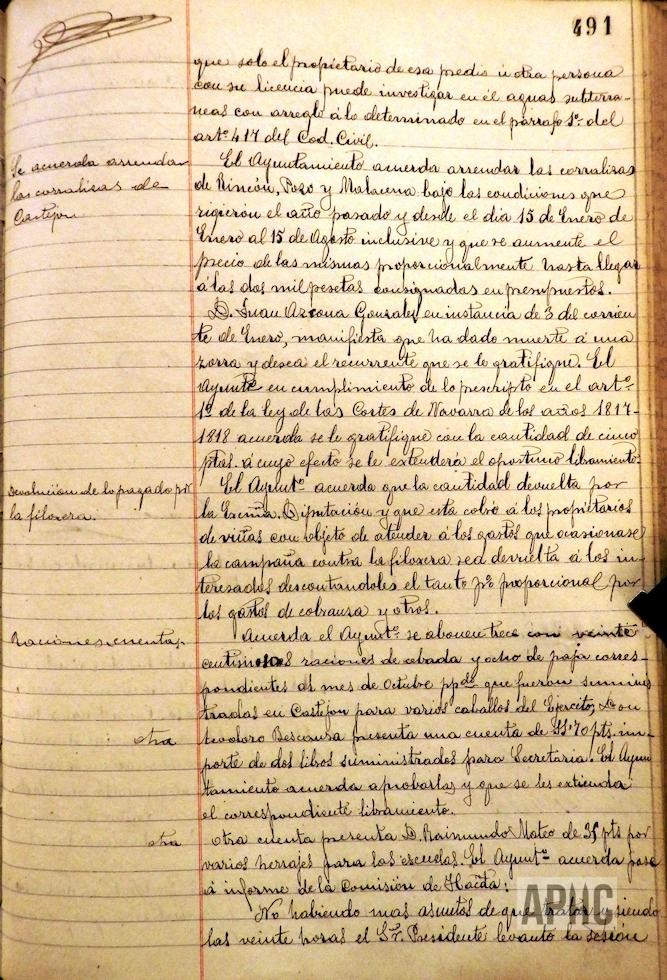 491
que solo el propietario de esa predio ú otra persona
con su licencia puede investigar en él aguas subterra-
neas con arreglo á lo determinado en el párrafo 1º del
artº 417 del Cod. Civil.
Se acuerda arrendar
las corralizas de
Castejon
El Ayuntamiento acuerda arrendar las corralizas
de Rincón, Pozo y Malacena bajo las condiciones que
rigieron el año pasado y desde el dia 15 de Enero de
Enero al 15 de Agosto inclusive y que se aumente el
precio de las mismas proporcionalmente hasta llegar
á las dos mil pesetas consignadas en presupuestos.
D. Juan Azcona Gonzalez en instancia de 3 del corrien
te de Enero, manifiesta que ha dado muerte á una
zorra y desea el recurrente que se le gratifique. El
Ayuntº en cumplimiento de lo prescripto en el artº
1º de la ley de las Cortes de Navarra de los años 1817-
1818 acuerda se le gratifique con la cantidad de cinco
ptas. á cuyo efecto se le extenderá el oportuno libramiento.
Devolución de lo pagado pr
la filoxera.
El Ayuntº acuerda que la cantidad devuelta por
la Excma. Diputación y que esta cobró á los propietarios
de viñas con objeto de atender á los gastos que ocasionase
la campaña contra la filoxera sea devuelta á los in-
teresados descontandoles el tanto pº proporcional por
los gastos de cobranza y otros.
Raciones, cuentas
Acuerda el Ayuntº se abonen trece con veinte
centimos raciones de cebada y ocho de paja corres-
pondientes al mes de Octubre ppdo que fueron suminis
tradas en Castejon para varios caballos del Ejercito, Don
otra
teodoro Bescansa presenta una cuenta de 11'70 pts. im-
porte de dos libros suministrados para Secretaria. El Ayun
tamiento acuerda aprobarlas y que se les extienda
el correspondiente libramiento.
otra
Otra cuenta presenta D. Raimundo Mateo de 35 pts por
varios herrajes para las escuelas. El Ayuntº acuerda pase
á informe de la Comisión de Hacda.
No habiendo mas asuntos de que tratar y siendo
las veinte horas el Sr. Presidente levantó la sesión
APHC